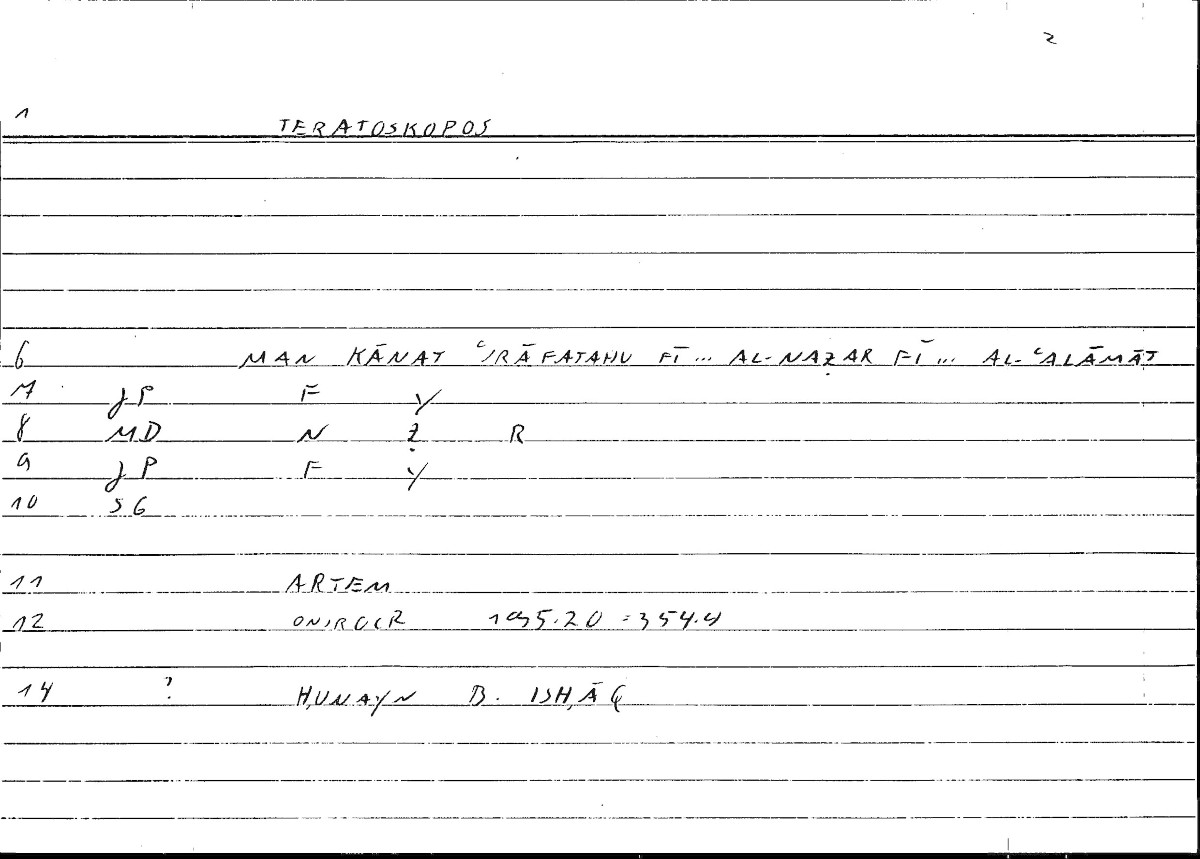 2
1 TERATOSKOPOS
6 MAN KĀNAT ʿIRĀFATAHU FĪ... AL-NAẒAR FĪ... AL-ʿALĀMĀT
7 JP F Y
8 MD N Ẓ R
9 JP F Y
10 SG
11 ARTEM
12 ONIROCR 195.20 = 354.4
14 ? ḤUNAYN B. ISḤĀQ